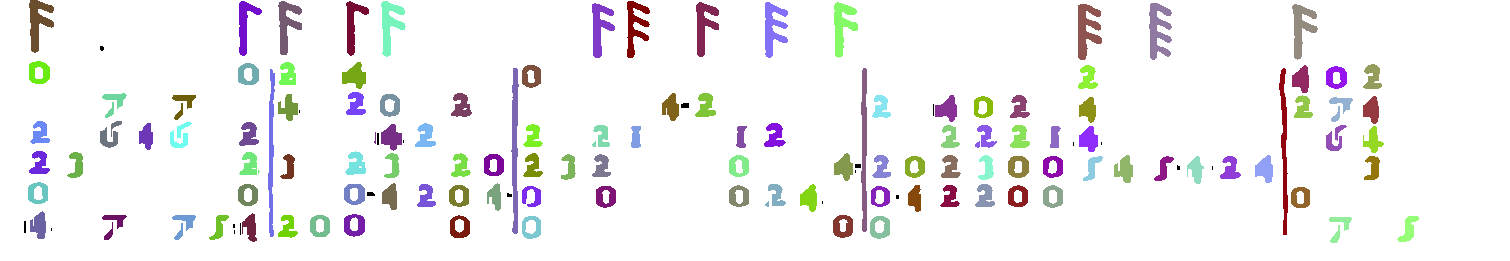 0 0 | 2 4 | 0 | 2 | 4 0 2
7 7 | 4 2 0 2 | 4 2 | 2 4 0 2 4 | 2 7 4
2 6 4 6 2 | 4 2 | 2 2 1 1 2 | 2 2 2 1 4 | 6 4
2 3 2 | 3 2 3 2 0 | 2 3 2 0 4 | 2 0 2 3 0 0 5 4 5 4 2 4 | 3
0 0 | 0 4 2 0 4 | 0 0 0 2 4 | 0 4 2 2 0 0 | 0
4 7 7 5 4 | 2 0 0 0 | 0 0 | 0 | 7 5